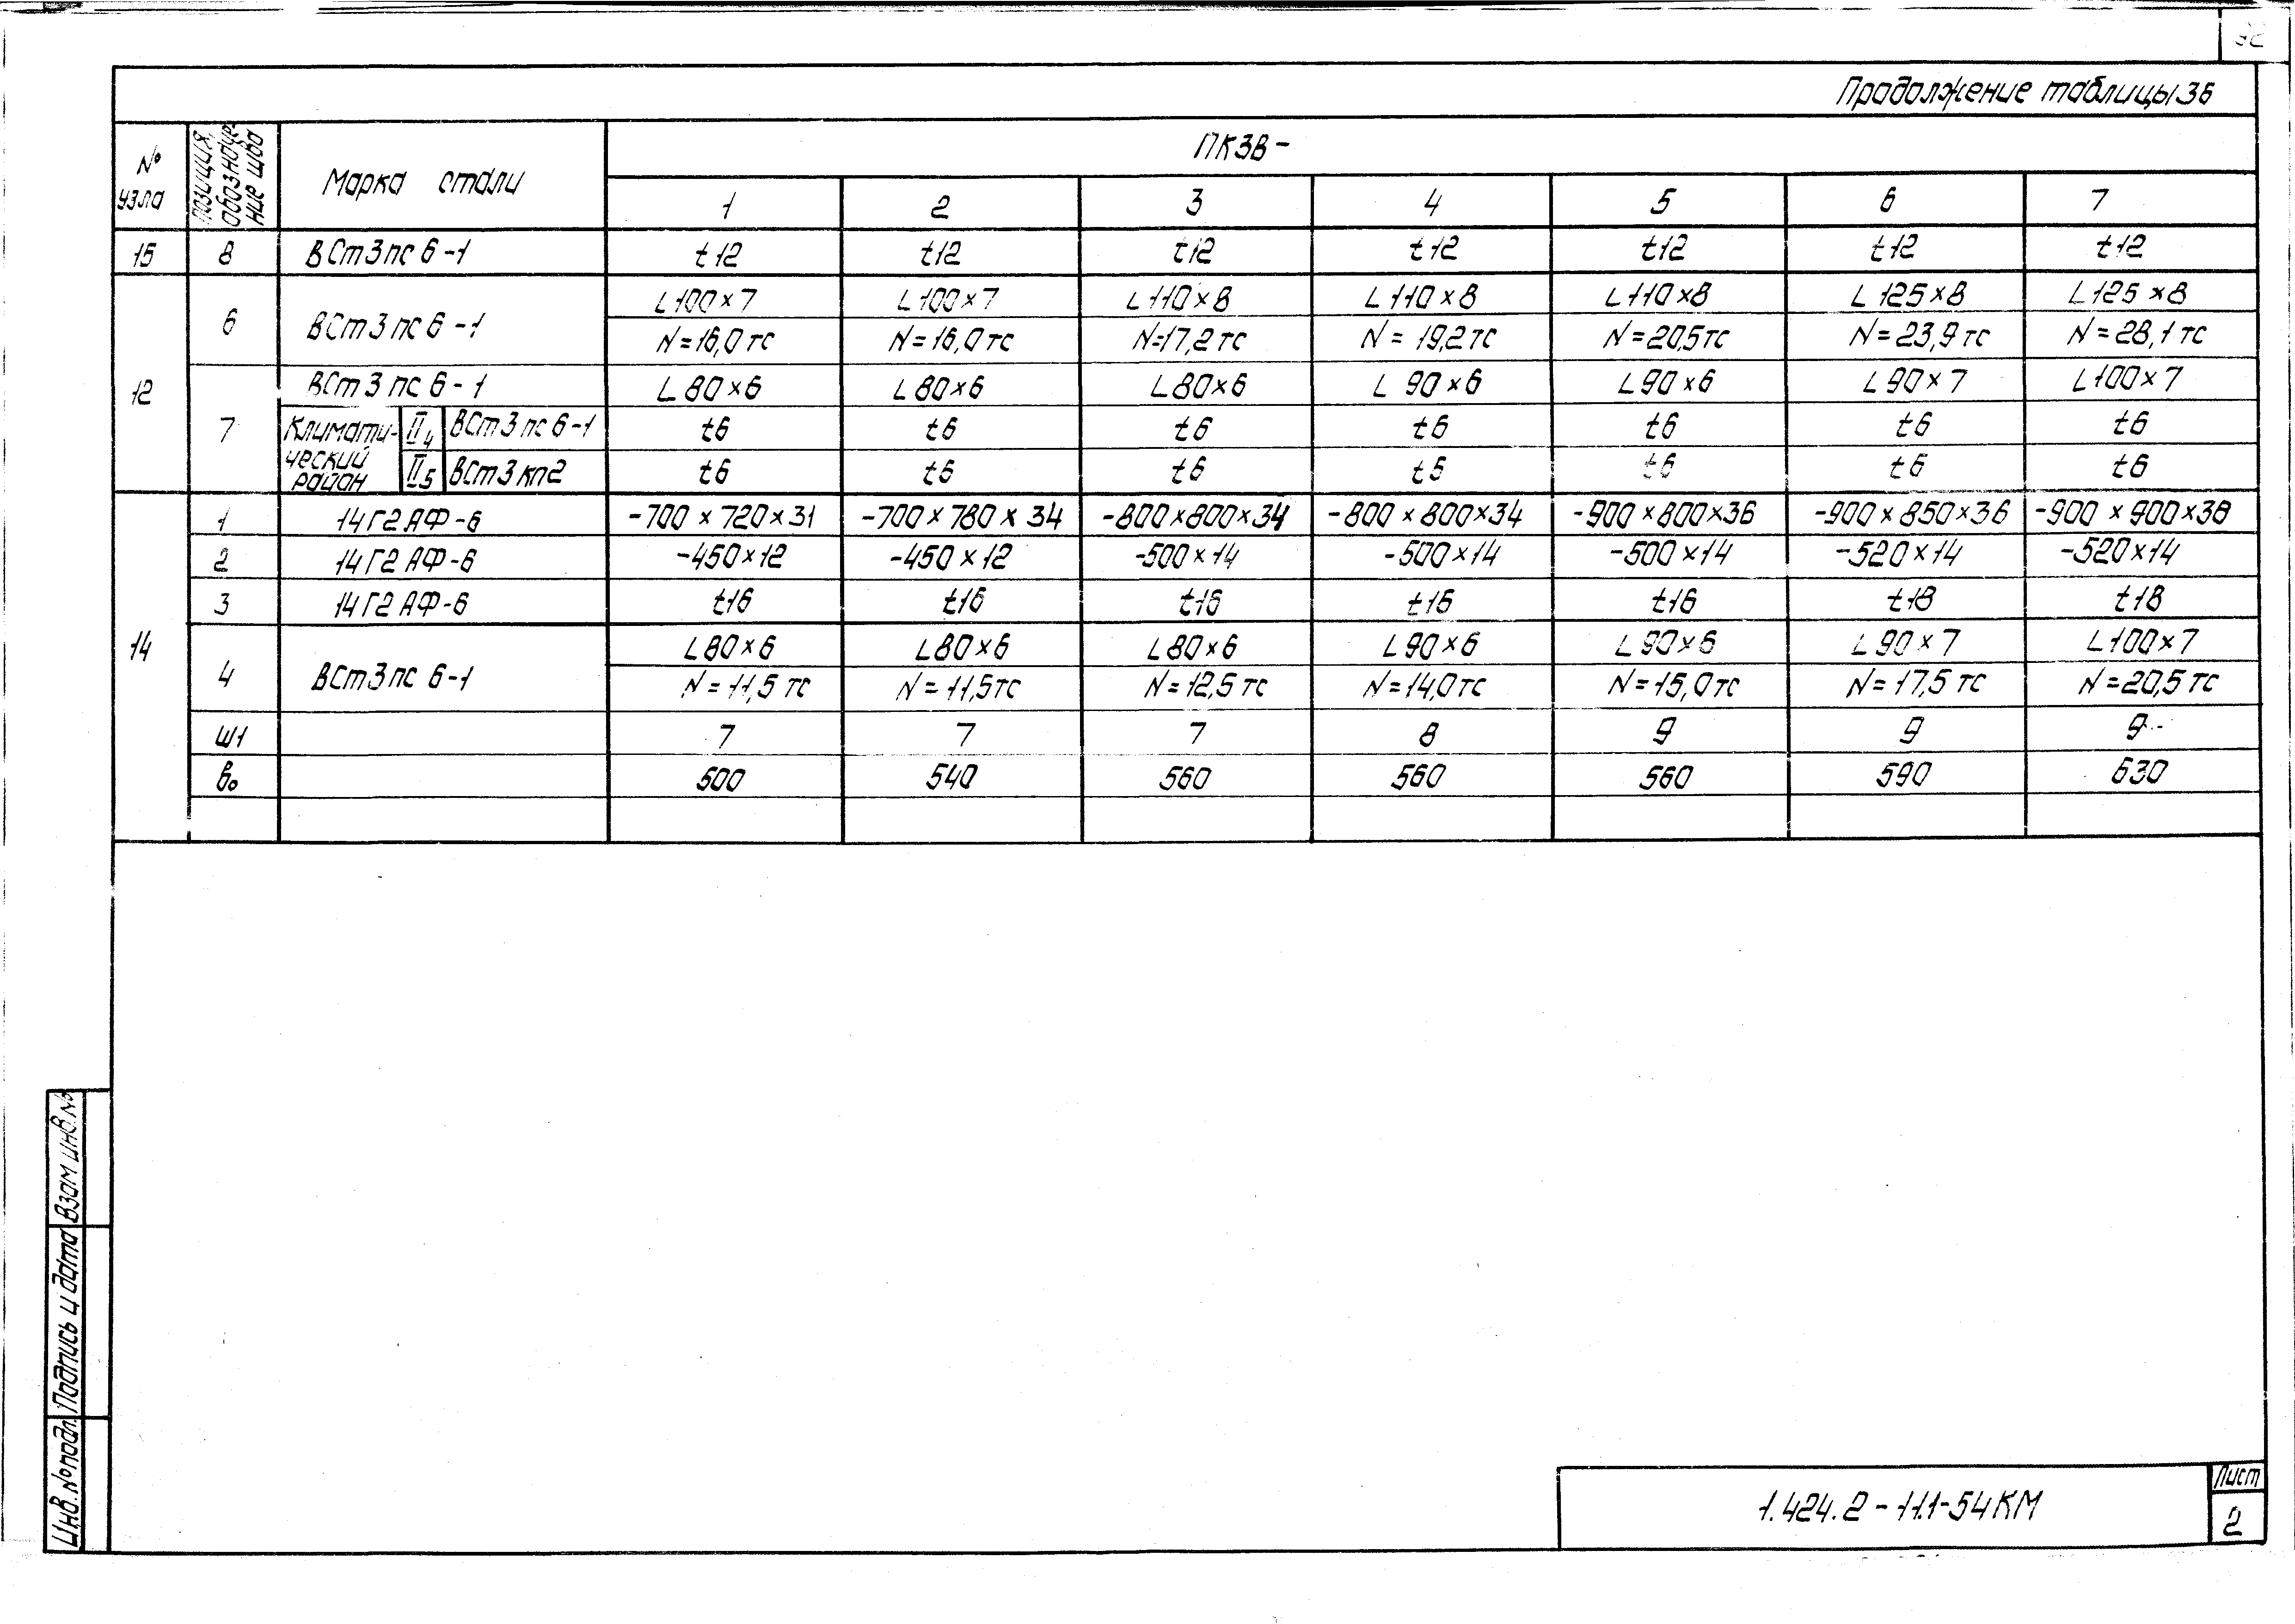 Продолжение таблицы 36
№ узла | Позиция, обозначение шва | Марка стали | ПКЗВ-
1 | 2 | 3 | 4 | 5 | 6 | 7
15 | 8 | ВСт3пс6-1 | t12 | t12 | t12 | t12 | t12 | t12 | t12
12 | 6 | ВСт3пс6-1 | L100×7 | L100×7 | L110×8 | L110×8 | L110×8 | L125×8 | L125×8
N=16,0тс | N=16,0тс | N=17,2тс | N=19,2тс | N=20,5тс | N=23,9тс | N=28,1тс
7 | ВСт3пс6-1 | L80×6 | L80×6 | L80×6 | L90×6 | L90×6 | L90×7 | L100×7
Климатический район | II4 | ВСт3пс6-1 | t6 | t6 | t6 | t6 | t6 | t6 | t6
II5 | ВСт3кп2 | t6 | t6 | t6 | t6 | t6 | t6 | t6
14 | 1 | 14Г2АФ-6 | -700×720×31 | -700×780×34 | -800×800×34 | -800×800×34 | -900×800×36 | -900×850×36 | -900×900×38
2 | 14Г2АФ-6 | -450×12 | -450×12 | -500×14 | -500×14 | -500×14 | -520×14 | -520×14
3 | 14Г2АФ-6 | t16 | t16 | t16 | t16 | t16 | t18 | t18
4 | ВСт3пс6-1 | L80×6 | L80×6 | L80×6 | L90×6 | L90×6 | L90×7 | L100×7
N=11,5тс | N=11,5тс | N=12,5тс | N=14,0тс | N=15,0тс | N=17,5тс | N=20,5тс
Ш1 | 7 | 7 | 7 | 8 | 9 | 9 | 9
в₀ | 500 | 540 | 560 | 560 | 560 | 590 | 630
Взам инв.№
Подпись и дата
Инв.№подл.
1.424.2-11.1-54КМ
Лист
2